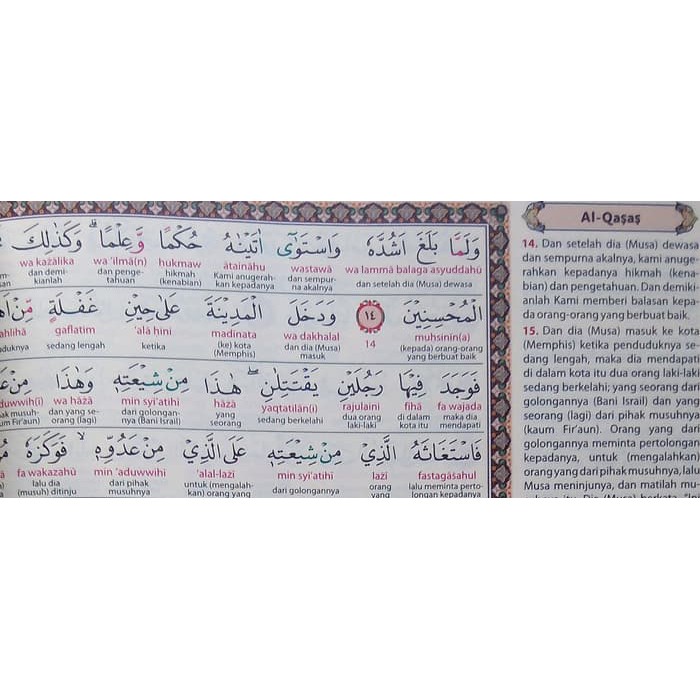 وَلَمَّا بَلَغَ اَشُدَّهٗ وَاسْتَوٰٓى اٰتَيْنٰهُ حُكْمًا وَّعِلْمًاۗ وَكَذٰلِكَ
wa lammā balaga asyuddahū wastawā ātaināhu hukmaw wa 'ilmā(n) wa każālika
dan setelah dia (Musa) dewasa dan sempurna akalnya Kami anugerahkan kepadanya hikmah (kenabian) dan pengetahuan dan demikianlah
الْمُحْسِنِيْنَ ١٤ وَدَخَلَ الْمَدِيْنَةَ عَلٰى حِيْنِ غَفْلَةٍ مِّنْ
muhsinin(a) 14 wa dakhalal madinata 'alā hini gaflatim
(kepada) orang-orang yang berbuat baik dan dia (Musa) masuk (ke) kota (Memphis) ketika sedang lengah
فَوَجَدَ فِيْهَا رَجُلَيْنِ يَقْتَتِلٰنِۖ هٰذَا مِنْ شِيْعَتِهٖ وَهٰذَا
fa wajada fihā rajulaini yaqtatilān(i) hāżā min syi'atihi wa hāżā
maka dia mendapati di dalam kota itu dua orang laki-laki sedang berkelahi yang seorang dari golongannya (Bani Israil) dan yang seorang (lagi)
فَاسْتَغَاثَهُ الَّذِيْ مِنْ شِيْعَتِهٖ عَلَى الَّذِيْ مِنْ عَدُوِّهٖ ۙ فَوَكَزَهٗ
fastagāsahul lażi min syi'atihi 'alal-lażi min 'aduwwihi fa wakazahū
lalu meminta pertolongan kepadanya orang yang dari golongannya untuk (mengalahkan) orang yang dari pihak musuhnya lalu dia (musuh) ditinju
Al-Qaṣaṣ
14. Dan setelah dia (Musa) dewasa
dan sempurna akalnya, kami anuge-
rahkan kepadanya hikmah (kena-
bian) dan pengetahuan. Dan demiki-
anlah Kami memberi balasan kepa-
da orang-orang yang berbuat baik.
15. Dan dia (Musa) masuk ke kota
(Memphis) ketika penduduknya se-
dang lengah, maka dia mendapati
di dalam kota itu dua orang laki-laki
sedang berkelahi; yang seorang dari
golongannya (Bani Israil) dan yang
seorang (lagi) dari pihak musuhnya
(kaum Fir'aun). Orang yang dari
golongannya meminta pertolongan
kepadanya, untuk (mengalahkan)
orang yang dari pihak musuhnya, lalu
Musa meninjunya, dan matilah mu-